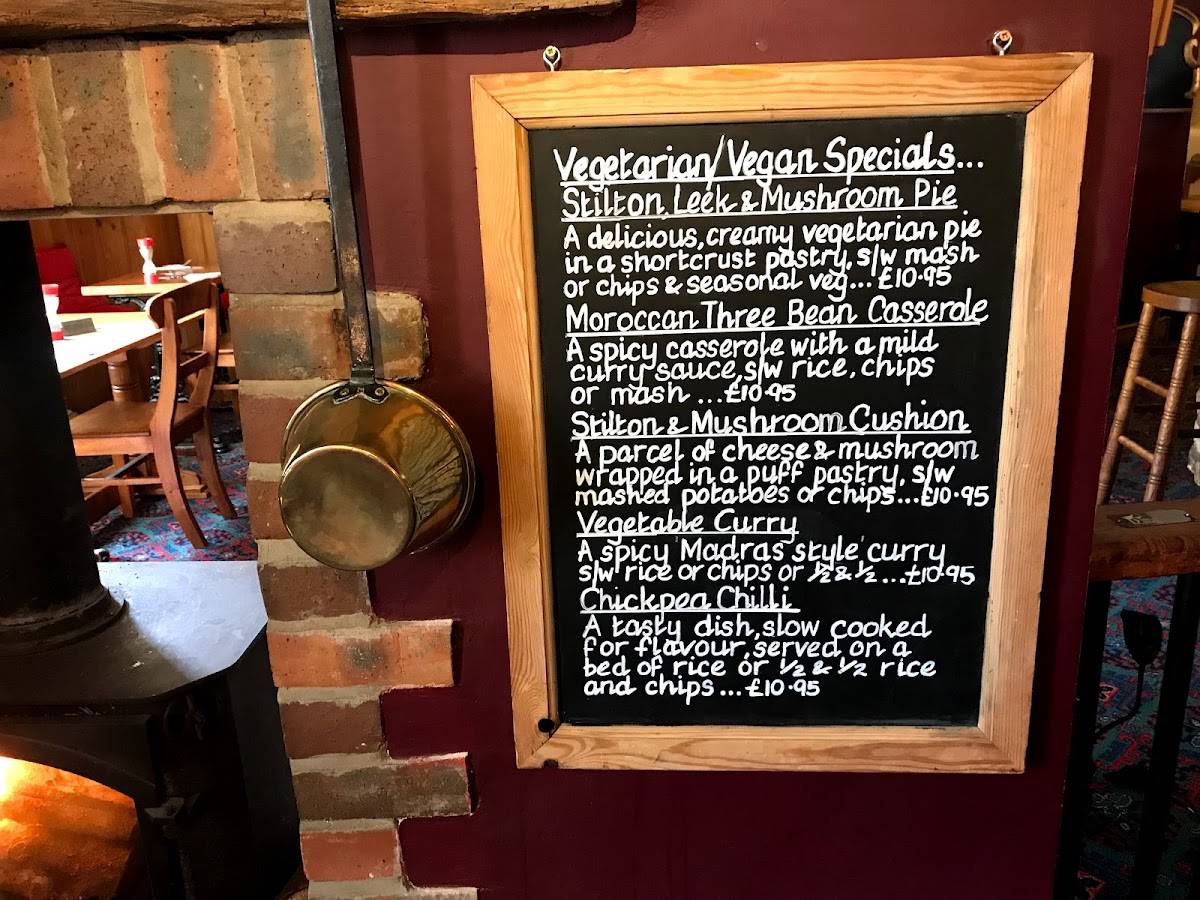 Vegetarian/Vegan Specials...
Stilton, Leek & Mushroom Pie
A delicious, creamy vegetarian pie
in a shortcrust pastry, s/w mash
or chips & seasonal veg... £10.95
Moroccan Three Bean Casserole
A spicy casserole with a mild
curry sauce, s/w rice, chips
or mash ... £10.95
Stilton & Mushroom Cushion
A parcel of cheese & mushroom
wrapped in a puff pastry, s/w
mashed potatoes or chips... £10.95
Vegetable Curry
A spicy 'Madras style' curry
s/w rice or chips or ½ & ½ ... £10.95
Chickpea Chilli
A tasty dish, slow cooked
for flavour, served on a
bed of rice or ½ & ½ rice
and chips ... £10.95